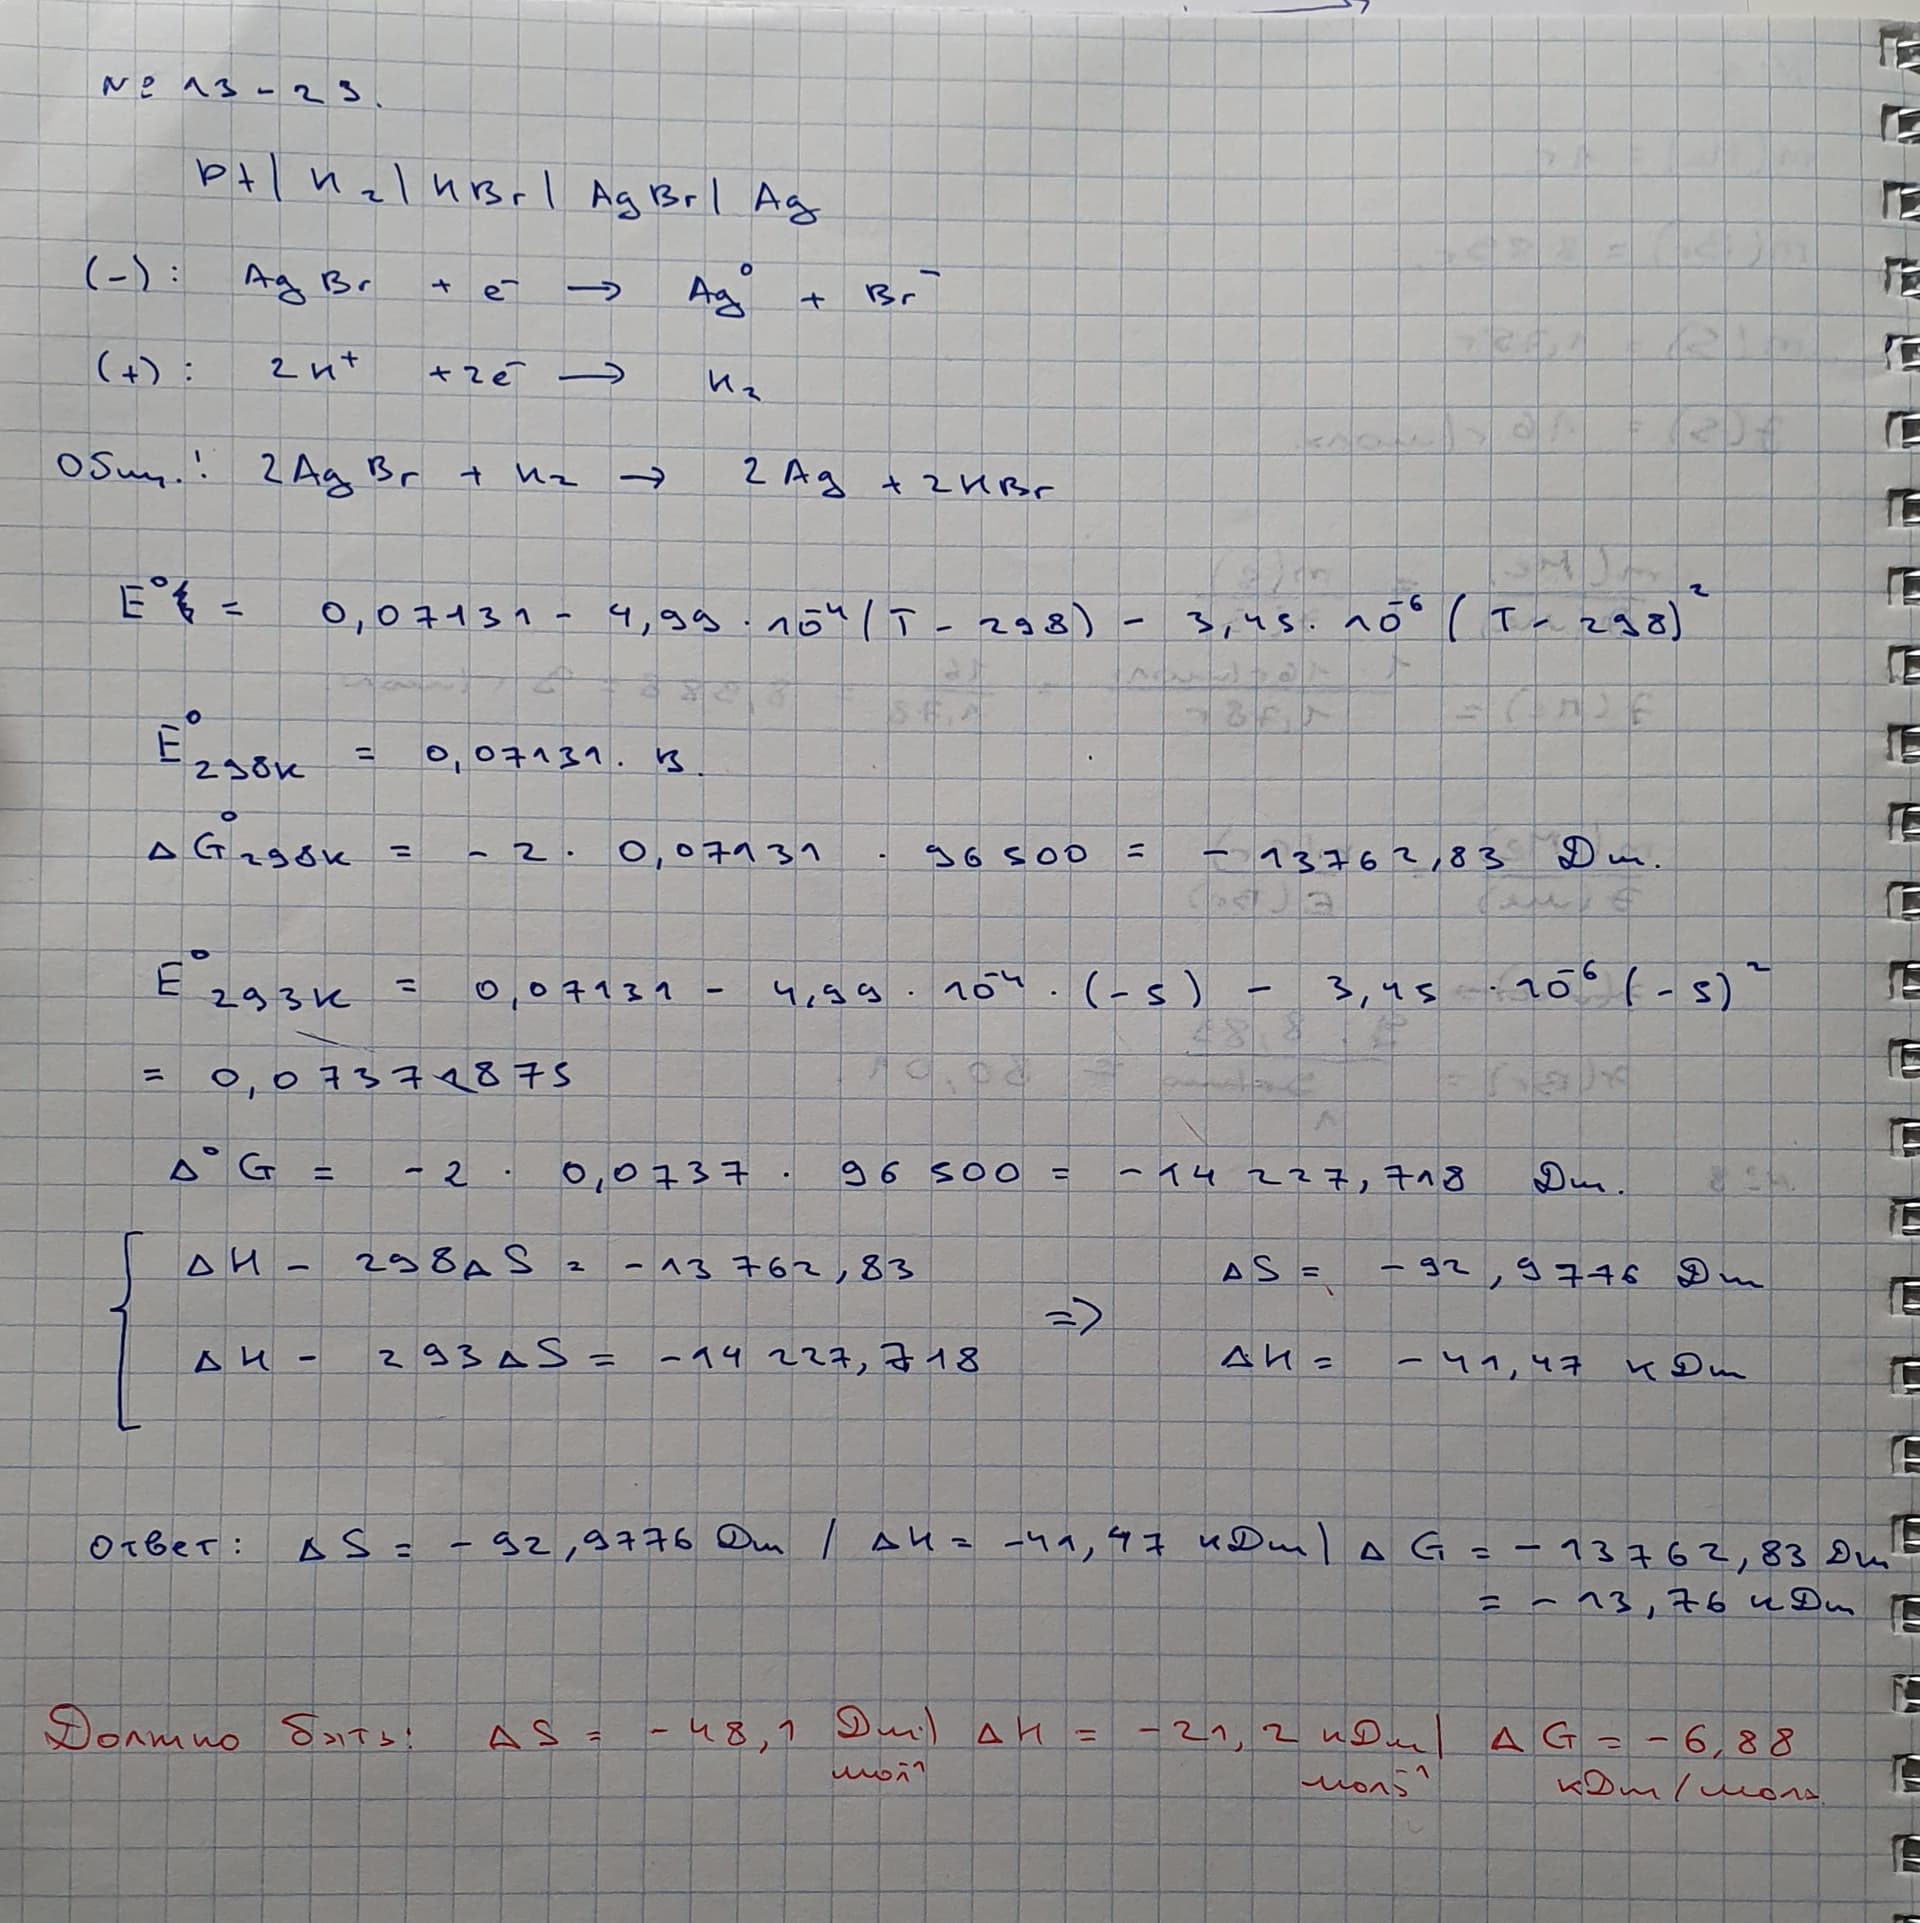 № 13-23.
Pt | H₂ | HBr | AgBr | Ag
(-): AgBr + e⁻ → Ag⁰ + Br⁻
(+): 2H⁺ + 2e⁻ → H₂
Общ.: 2AgBr + H₂ → 2Ag + 2HBr
E° = 0,07131 - 4,99 · 10⁻⁴ (T - 298) - 3,45 · 10⁻⁶ (T - 298)²
E°₂₉₈K = 0,07131. В.
ΔG°₂₉₈K = - 2 · 0,07131 · 96500 = - 13762,83 Дж.
E°₂₉₃K = 0,07131 - 4,99 · 10⁻⁴ · (-5) - 3,45 · 10⁻⁶ (-5)²
= 0,07371875
Δ°G = - 2 · 0,0737 · 96500 = - 14227,718 Дж.
ΔH - 298ΔS = - 13762,83 ΔS = - 92,9776 Дж
=>
ΔH - 293ΔS = - 14227,718 ΔH = - 41,47 кДж
Ответ: ΔS = - 92,9776 Дж / ΔH = -41,47 кДж | ΔG = - 13762,83 Дж
= - 13,76 кДж
Должно быть: ΔS = - 48,1 Дж | ΔH = - 21,2 кДж | ΔG = - 6,88
моль⁻¹ моль⁻¹ кДж/моль